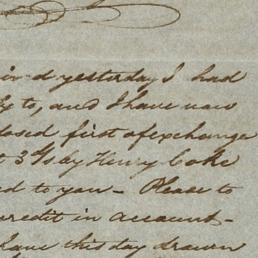 yesterday I had
to, and I have now
closed first of exchange
by Henry Coke
ed to you - Please to
credit in account -
have this day drawn